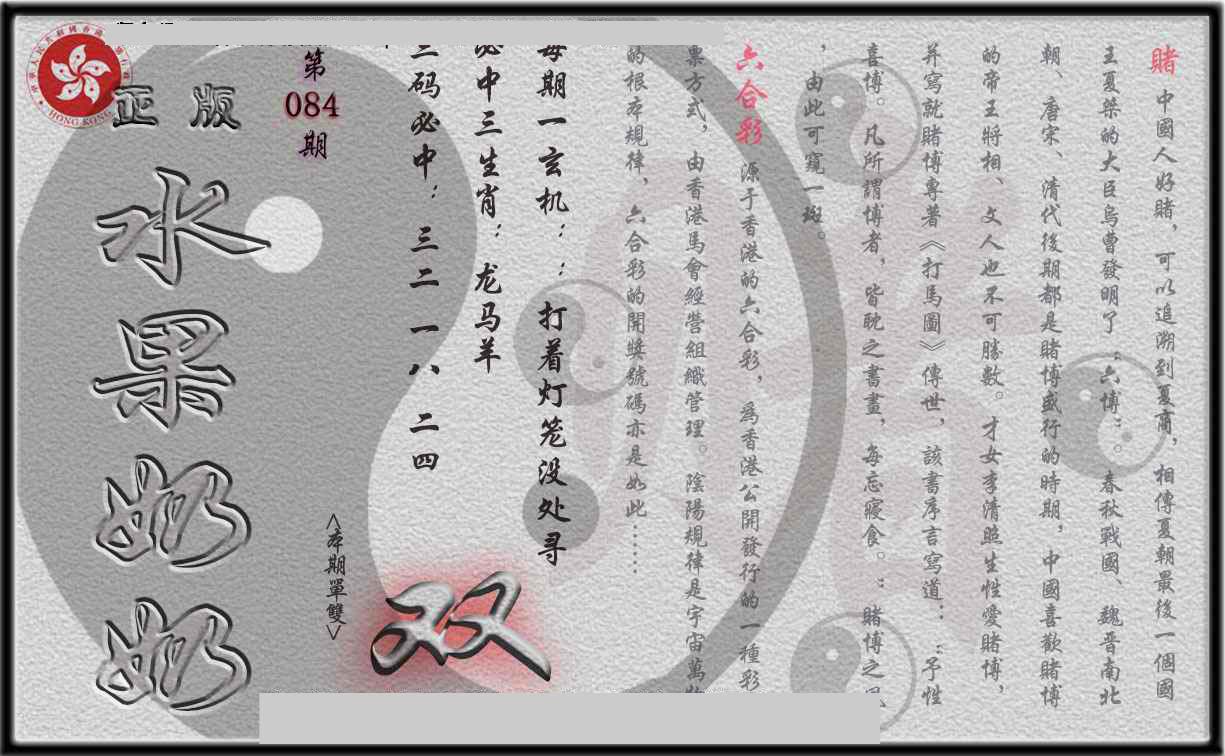 賭 中國人好賭，可以追溯到夏商，相傳夏朝最後一個國
王夏桀的大臣烏曹發明了“六博”。春秋戰國、魏晋南北
朝、唐宋、清代後期都是賭博盛行的時期，中國喜歡賭博
的帝王將相、文人也不可勝數。才女李清照生性愛賭博，
并寫就賭博專著《打馬圖》傳世，該書序言寫道：“予性
喜博。凡所謂博者，皆耽之書畫，每忘寢食。”賭博之風
，由此可窺一斑。
六合彩 源于香港的六合彩，為香港公開發行的一種彩
票方式，由香港馬會經營組織管理。陰陽規律是宇宙萬物
的根本規律、六合彩的開獎號碼亦是如此……
每期一玄机：：打着灯笼没处寻
必中三生肖：龙马羊
三码必中：三二 一八 二四
双
<本期單雙>
第
084
期
正版
水果奶奶
HONG KONG